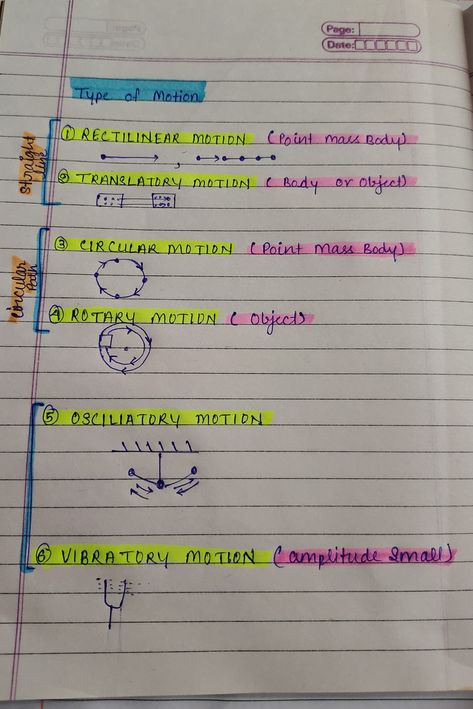 Page:
Date:
Type of Motion
Straight line
① RECTILINEAR MOTION (Point mass Body)
② TRANSLATORY MOTION (Body or Object)
Circular Path
③ CIRCULAR MOTION (Point Mass Body)
④ ROTARY MOTION (Object)
⑤ OSCILIATORY MOTION
⑥ VIBRATORY MOTION (amplitude Small)